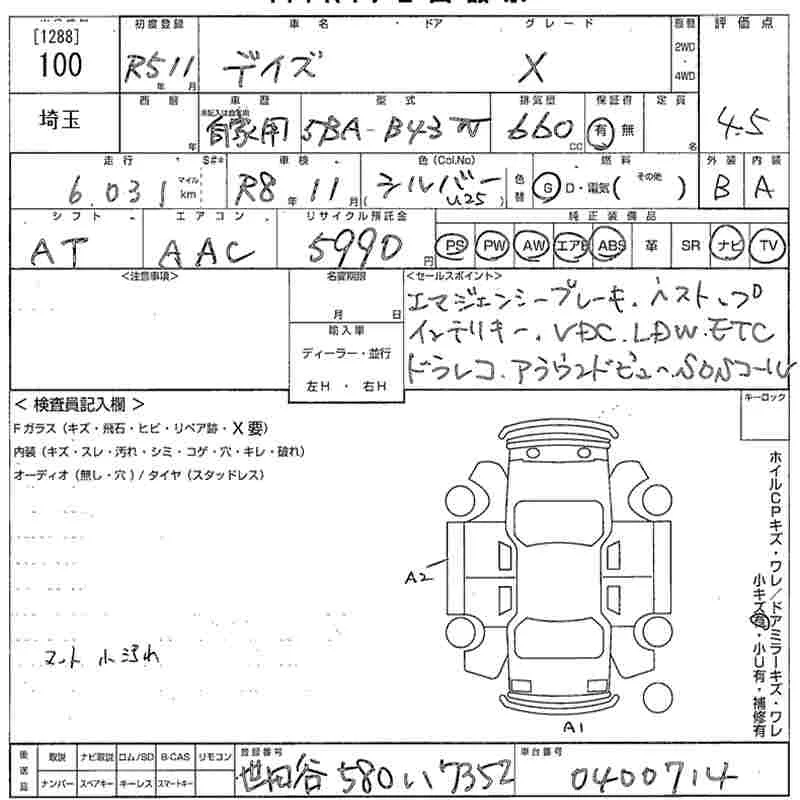 [1288]
100
初度登録
車名・ドア
グレード
R5 11
年 月
デイズ
X
2WD
4WD
評価点
埼玉
西暦
年
車歴
自家用
型式
5BA-B43W
排気量
660
CC
保証書
有 無
定員
名
4.5
走行
S#*
6.031
マイル
km
車検
R8 年 11 月
色(Col,No)
シルバー
U25
色替
燃料
G D・電気( その他 )
外装
内装
B
A
シフト
エアコン
リサイクル預託金
純正装備品
AT
AAC
5990
円
PS PW AW エアB ABS 革 SR ナビ TV
<注意事項>
名変期限
月 日
輸入車
ディーラー・並行
左H・右H
<セールスポイント>
エマジェンシーブレーキ.
インテリキー.VDC.LDW.ETC
ドラレコ.アラウンドビュー.SOSコール
<検査員記入欄>
Fガラス(キズ・飛石・ヒビ・リペア跡・X要)
内装(キズ・スレ・汚れ・シミ・コゲ・穴・キレ・破れ)
オーディオ(無し・穴)/タイヤ(スタッドレス)
キーロック
ホイルCPキズ・ワレ/ドアミラーキズ・ワレ
小キズ有・小U有・補修有
A2
マット小汚れ
A1
後送品
取説 ナビ取説 ロム/SD B-CAS リモコン
ナンバー スペアキー キーレス スマートキー
登録番号
世田谷 580 い 7352
車台番号
0400714